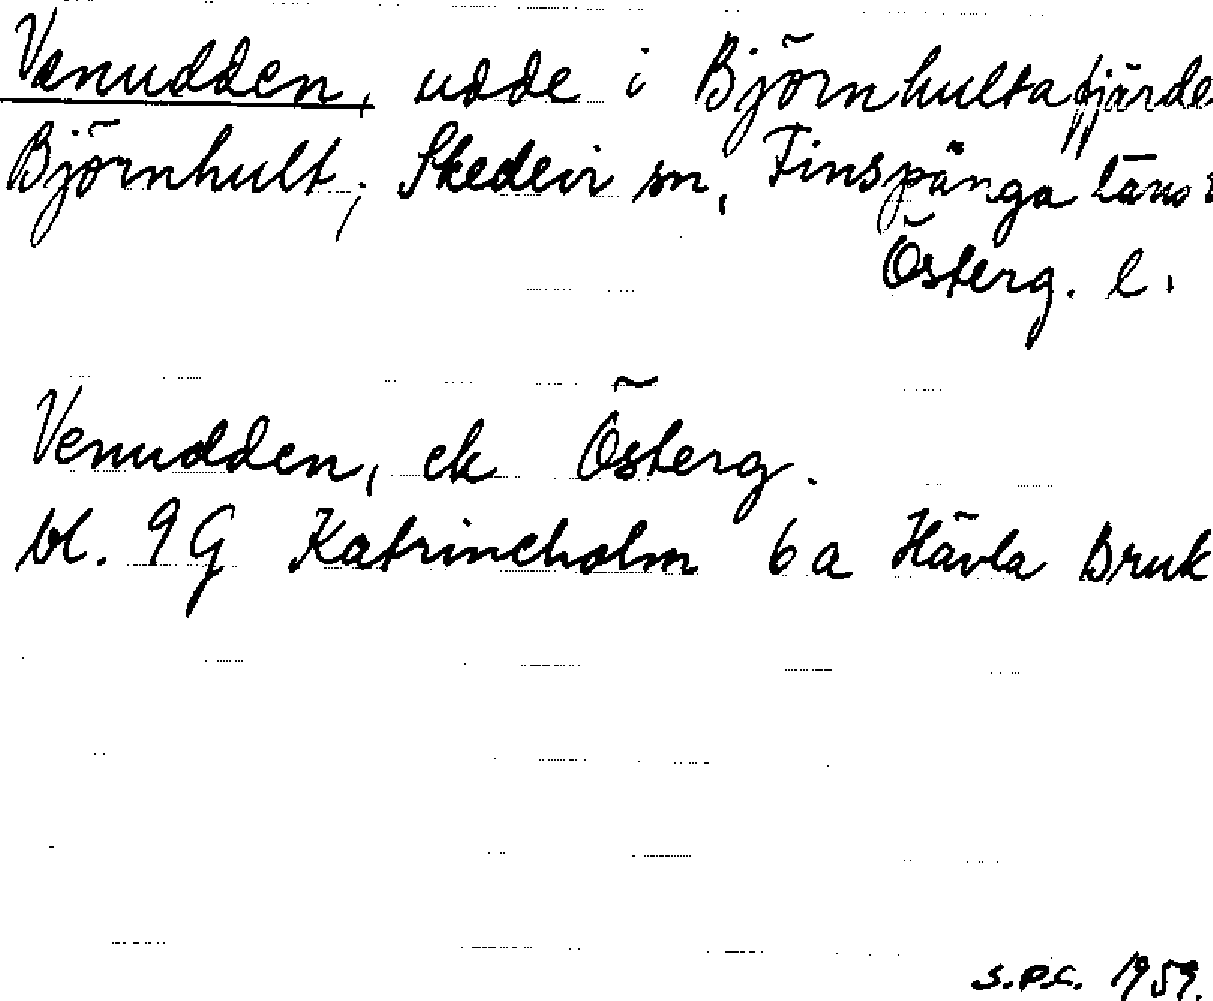 Venudden, udde i Björnhultafjärde
Björnhult, Skedevi sn, Finspånga läns
Österg. l.
Venudden, ek Österg.
bl. 9G Katrineholm 6a Hävla Bruk
S.P.C. 1959.